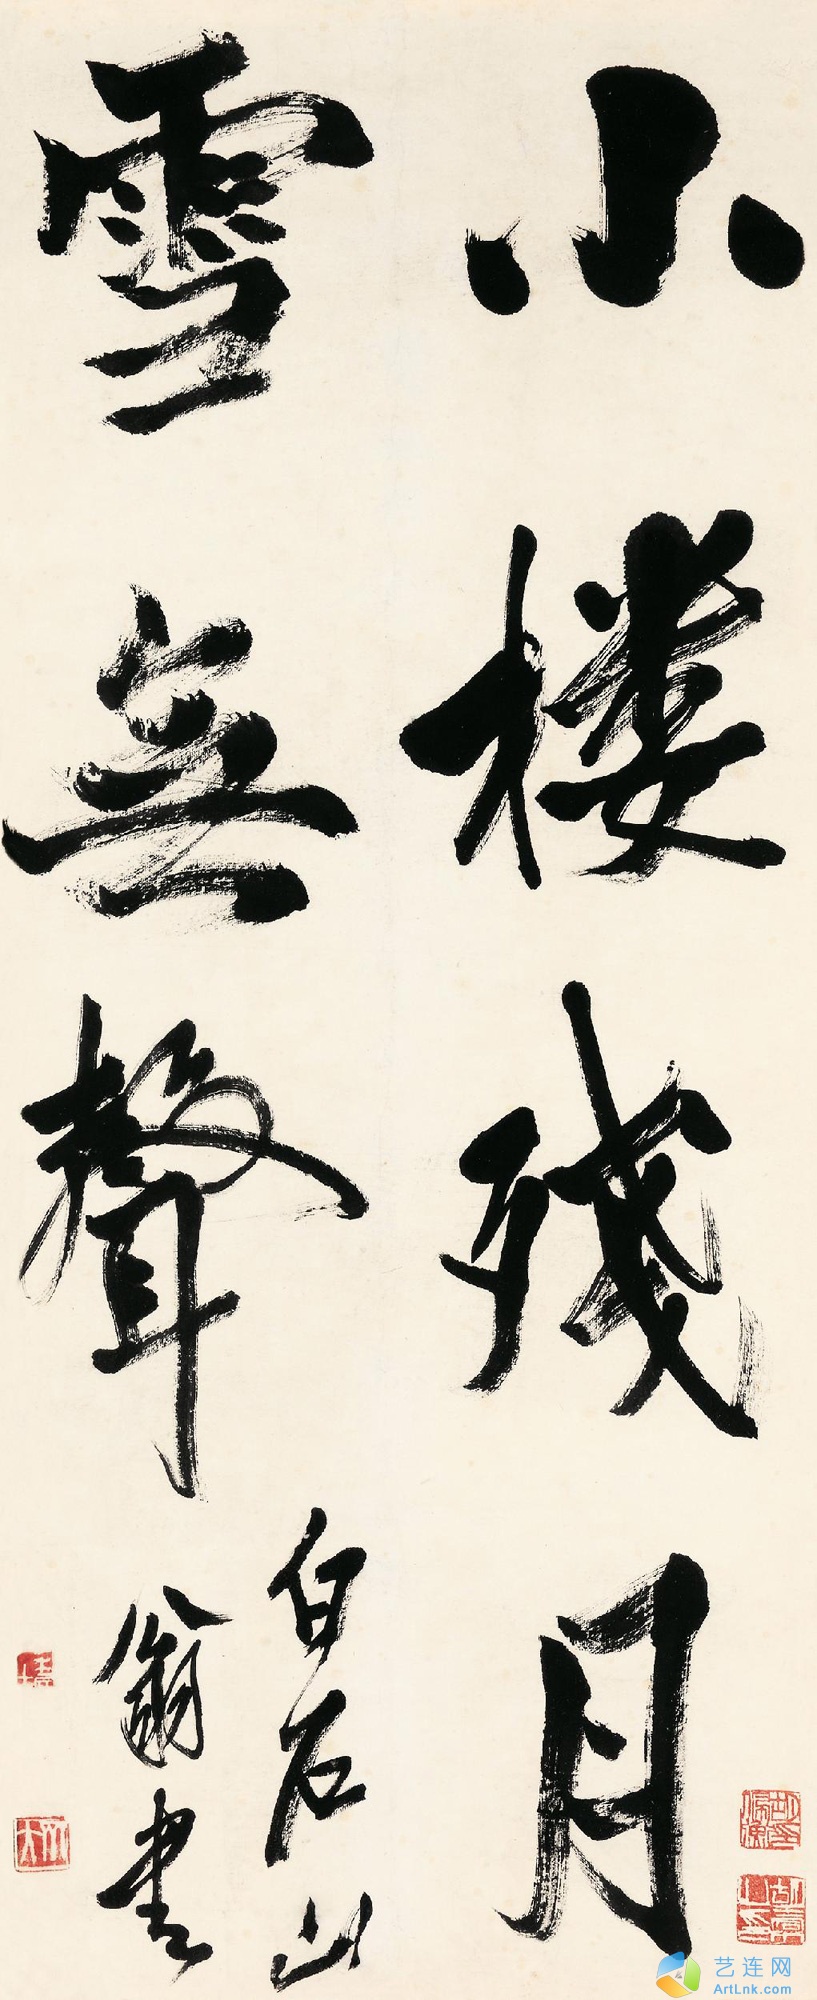 小楼残月
雪無聲
白石山
翁書
艺连网
ArtLnk.com